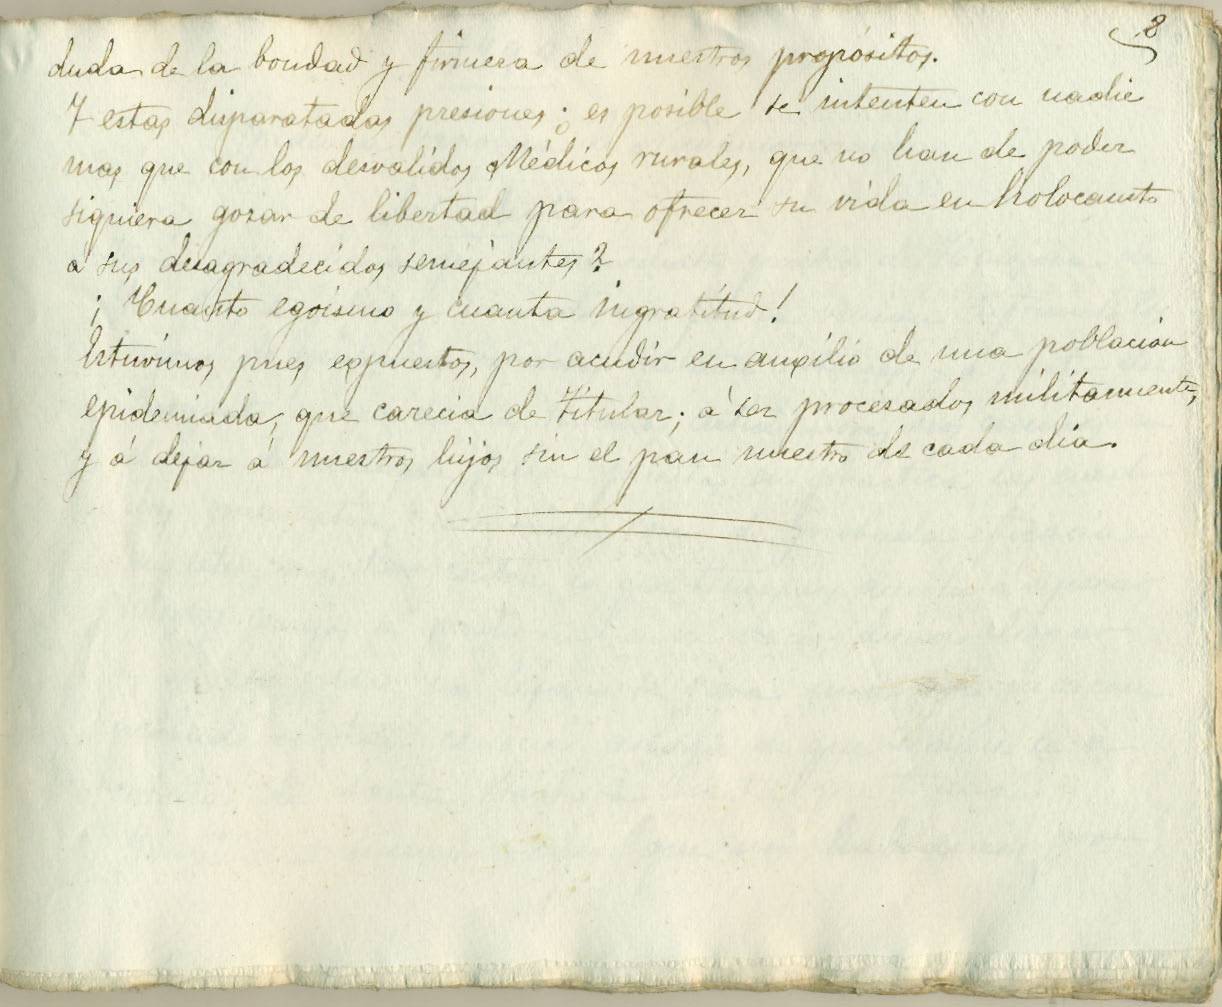 8
duda de la bondad y firmeza de nuestros propósitos.
Y estas disparatadas presiones ¿ es posible se intenten con nadie
mas que con los desvalidos Médicos rurales, que no han de poder
siquiera gozar de libertad para ofrecer su vida en holocausto
a sus desagradecidos semejantes?
¡ Cuanto egoismo y cuanta ingratitud!
Estuvimos pues expuestos, por acudir en auxilio de una poblacion
epidemiada, que carecia de Titular; á ser procesados militarmente,
y á dejar á nuestros hijos sin el pan nuestro de cada dia.